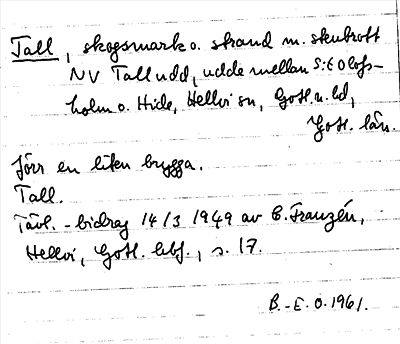 Tall, skogsmark o. strand m. stenbrott
NV Talludd, udde mellan S:t Olofs-
holm o. Hide, Hellvi sn, Gotl. n. hd,
Gotl. län.
Förr en liten brygga.
Tall.
Tävl.-bidrag 14/3 1949 av E. Franzén,
Hellvi, Gotl. , s. 17.
B.-E. O. 1961.